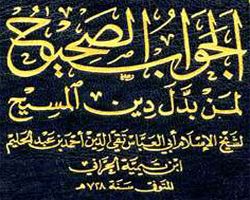 الجواب الصحيح
لمن بدل دين المسيح
لشيخ الإسلام أبي العباس تقي الدين أحمد بن عبد الحليم
ابن تيمية الحراني
المتوفى سنة ٧٢٨ هـ